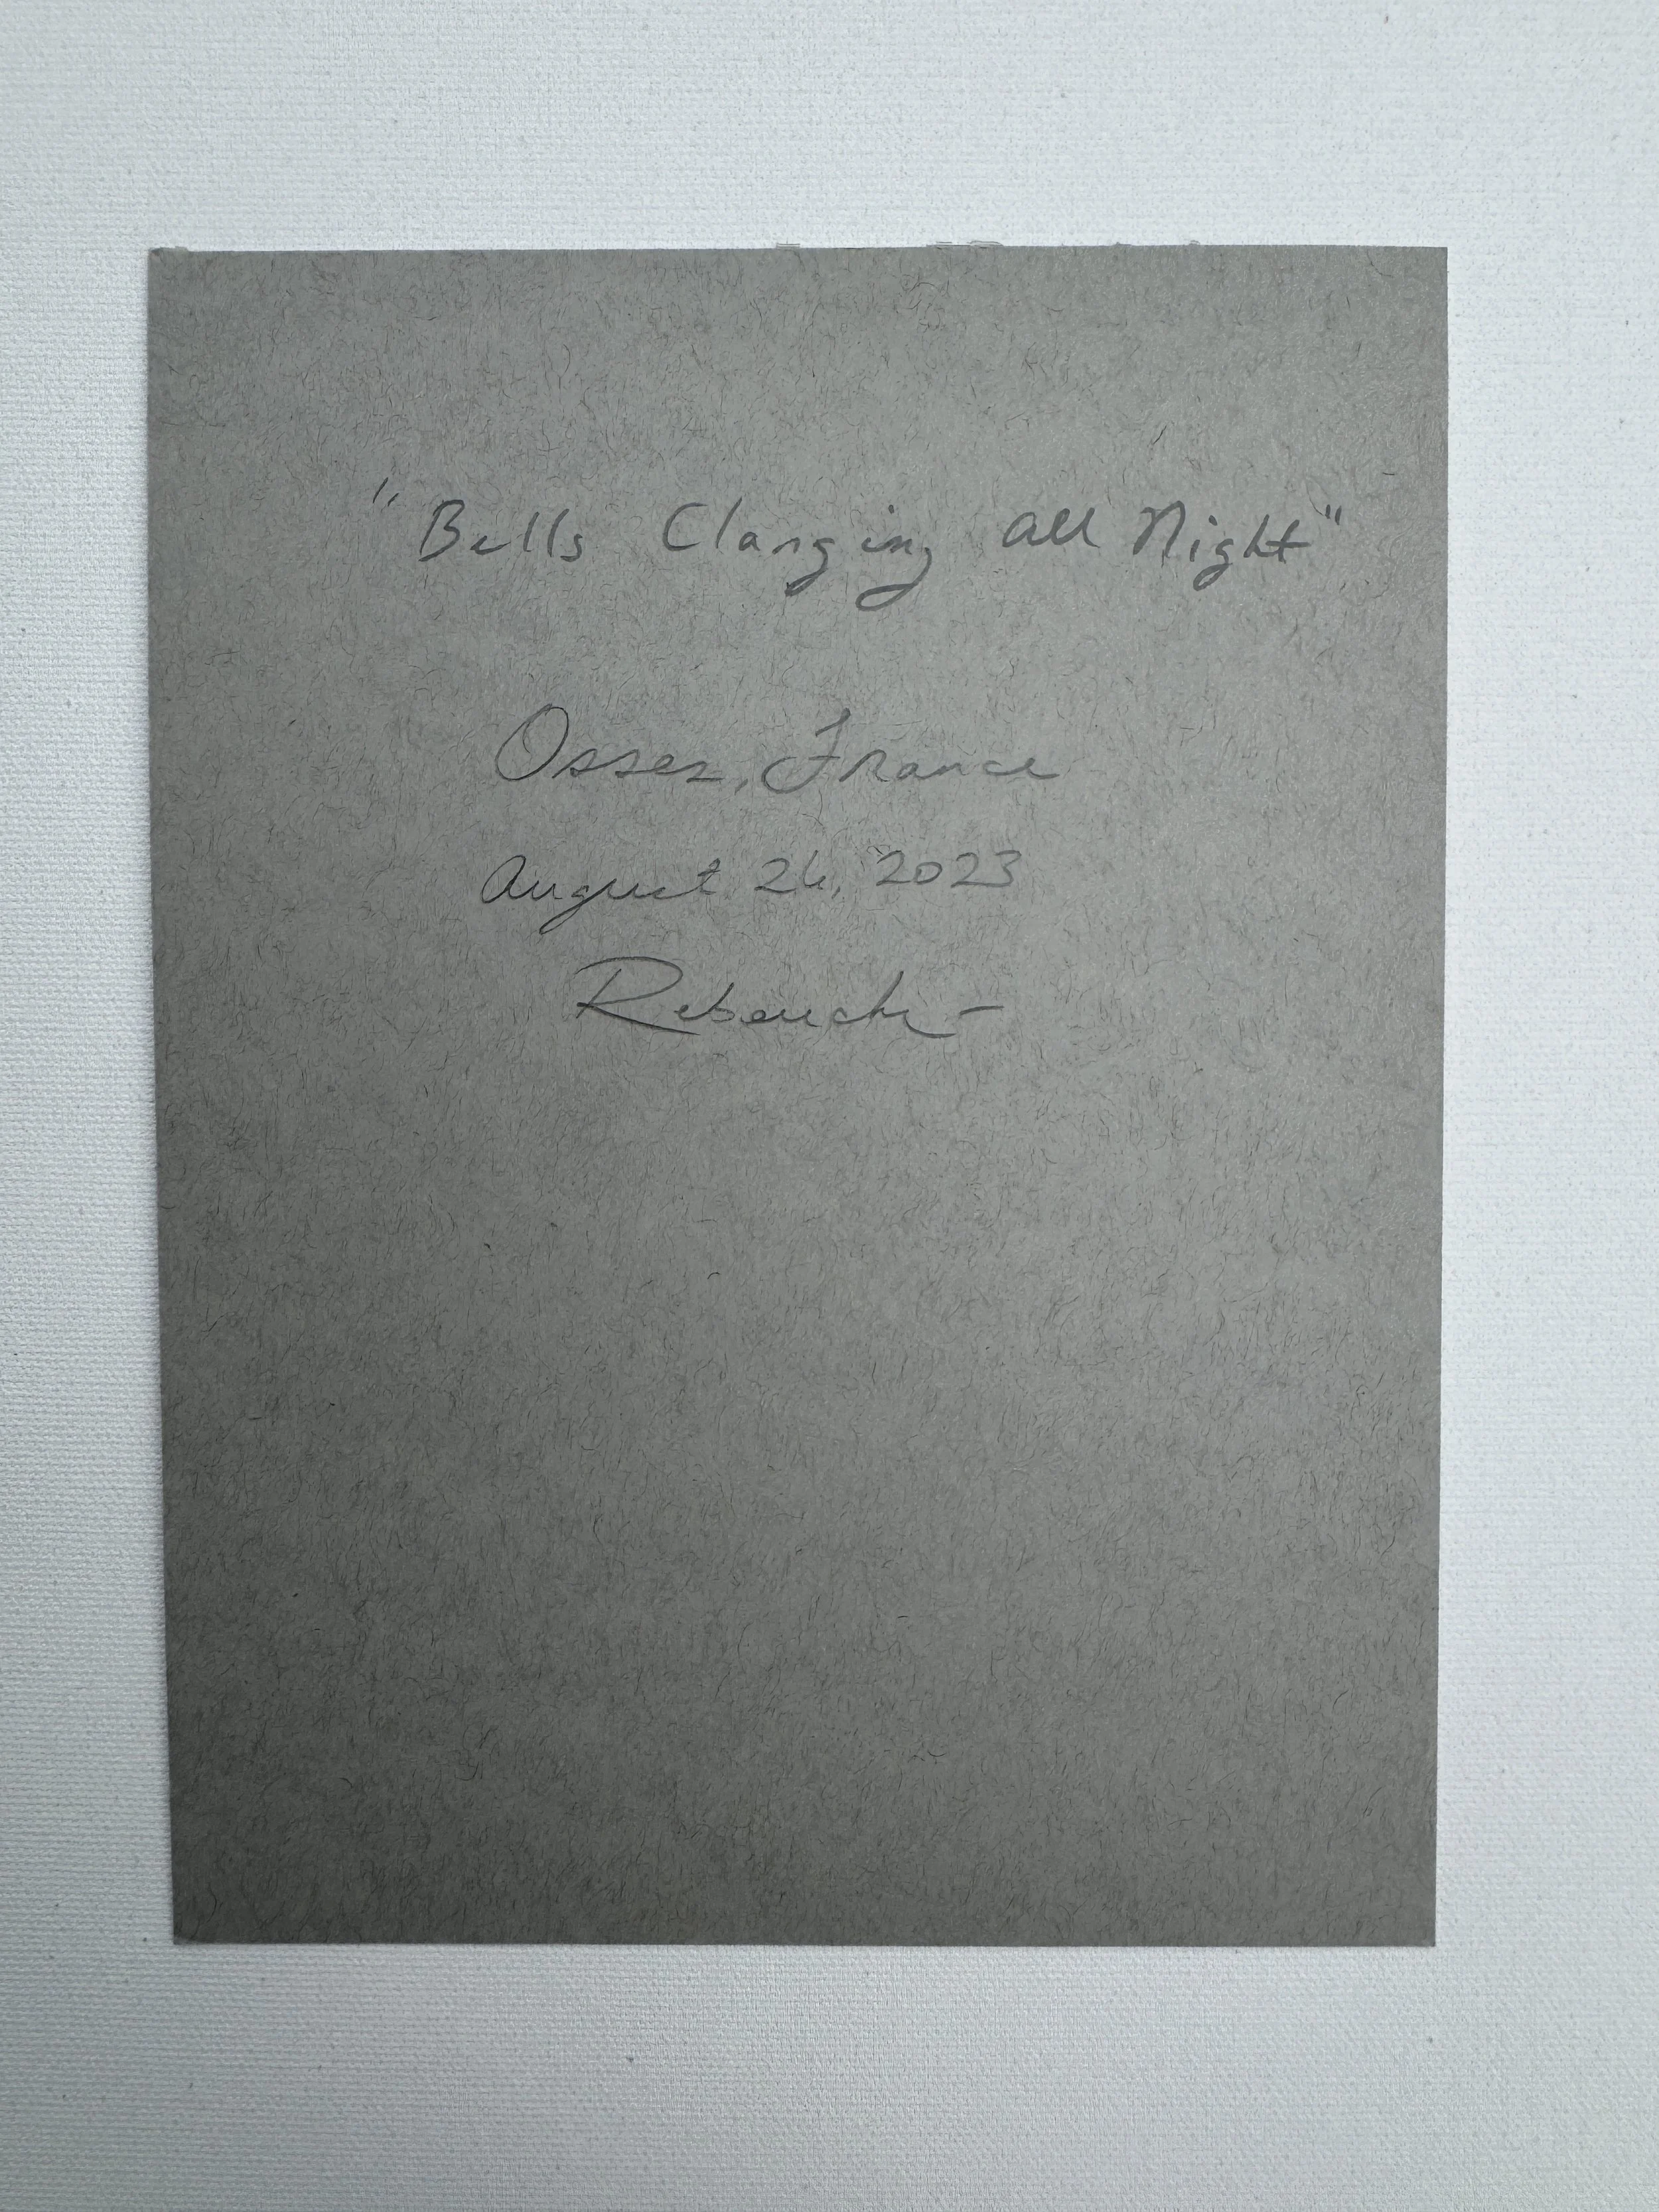 "Bells Clanging all Night"
Osses, France
August 26, 2023